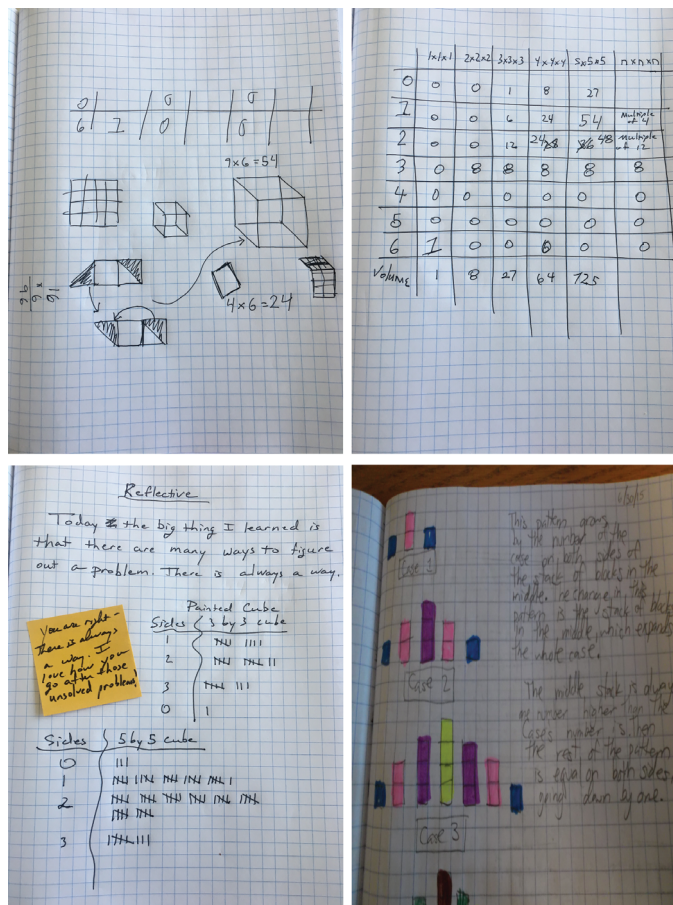 0 0 0
6 1 0 0
9x6=54
4x6=24
1x1x1 2x2x2 3x3x3 4x4x4 5x5x5 nxnxn
0 0 0 1 8 27
1 0 0 6 24 54 multiple of 4
2 0 0 12 24 48 multiple of 12
3 0 8 8 8 8 8
4 0 0 0 0 0 0
5 0 0 0 0 0 0
6 1 0 0 0 0 0
Volume 1 8 27 64 125
Reflective
Today the big thing I learned is
that there are many ways to figure
out a problem. There is always a way.
You are right -
there is always
a way. I
love how you
go after those
unsolved problems!
Painted Cube
Sides 3 by 3 cube
1
2
3
0
Sides 5 by 5 cube
0
1
2
3
6/30/15
This pattern grows
by the number of the
case on both sides of
the stack of blocks in the
middle. change in the
pattern is the stack of blocks
in the middle, which expands
the whole case.
Case 1
Case 2
The middle stack is always
one number higher than the
cases number is, then
the rest of the pattern
is equal on both sides,
going down by one.
Case 3